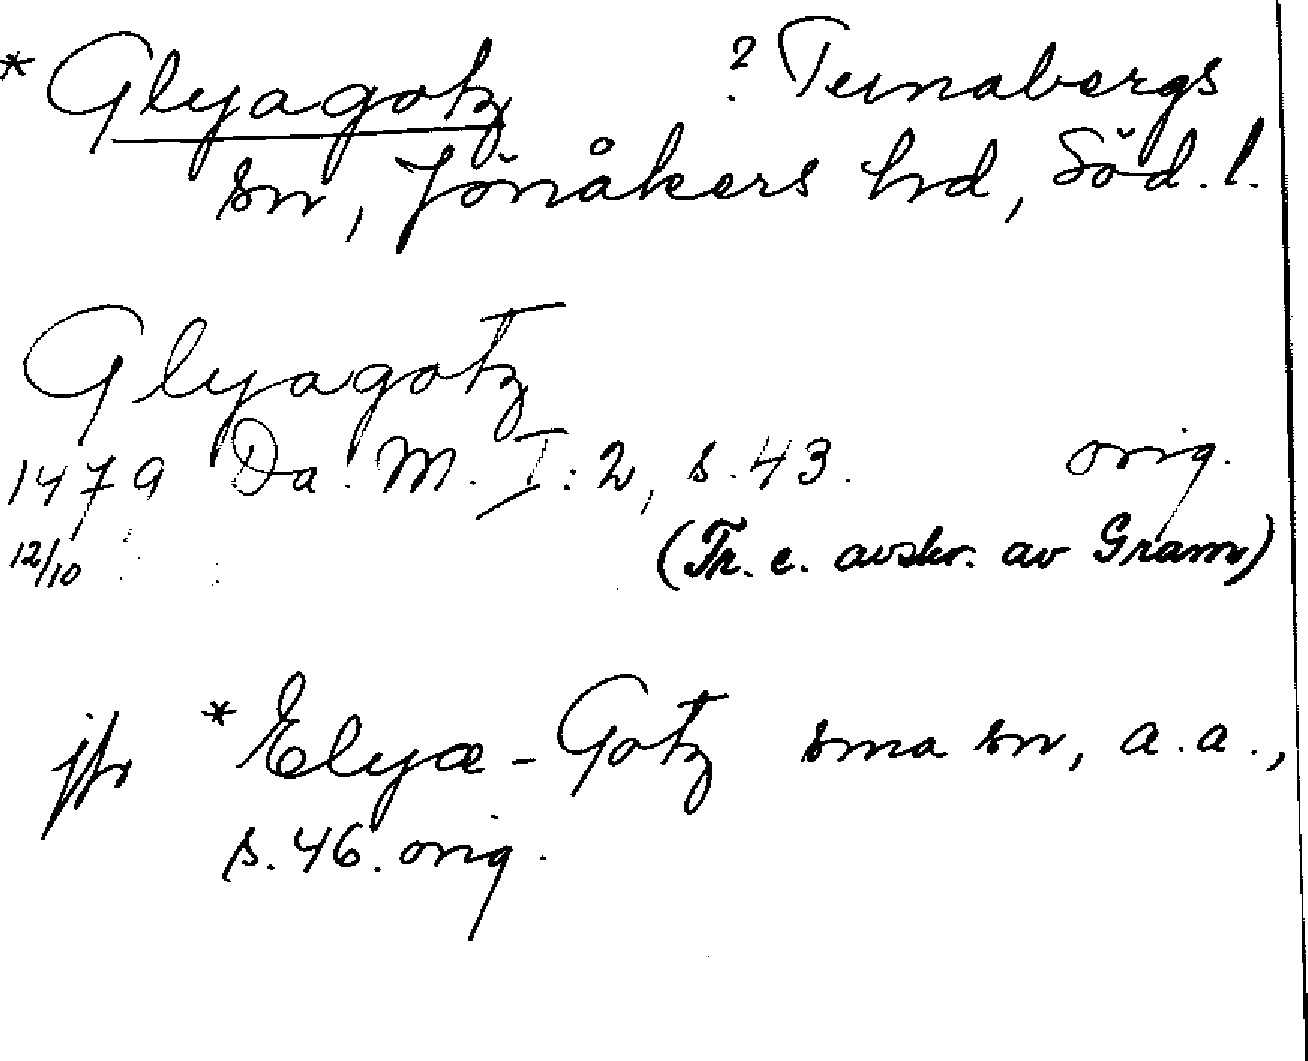 * Glyagotz ? Tunabergs
sn, Jönåkers hd, Söd. l.
Glyagotz
1479 Da. M. I: 2, s. 43. orig.
12/10 (Tr. e. avskr. av Gram)
jfr *Elyæ-Gotz sma sn, a.a.,
s. 46. orig.